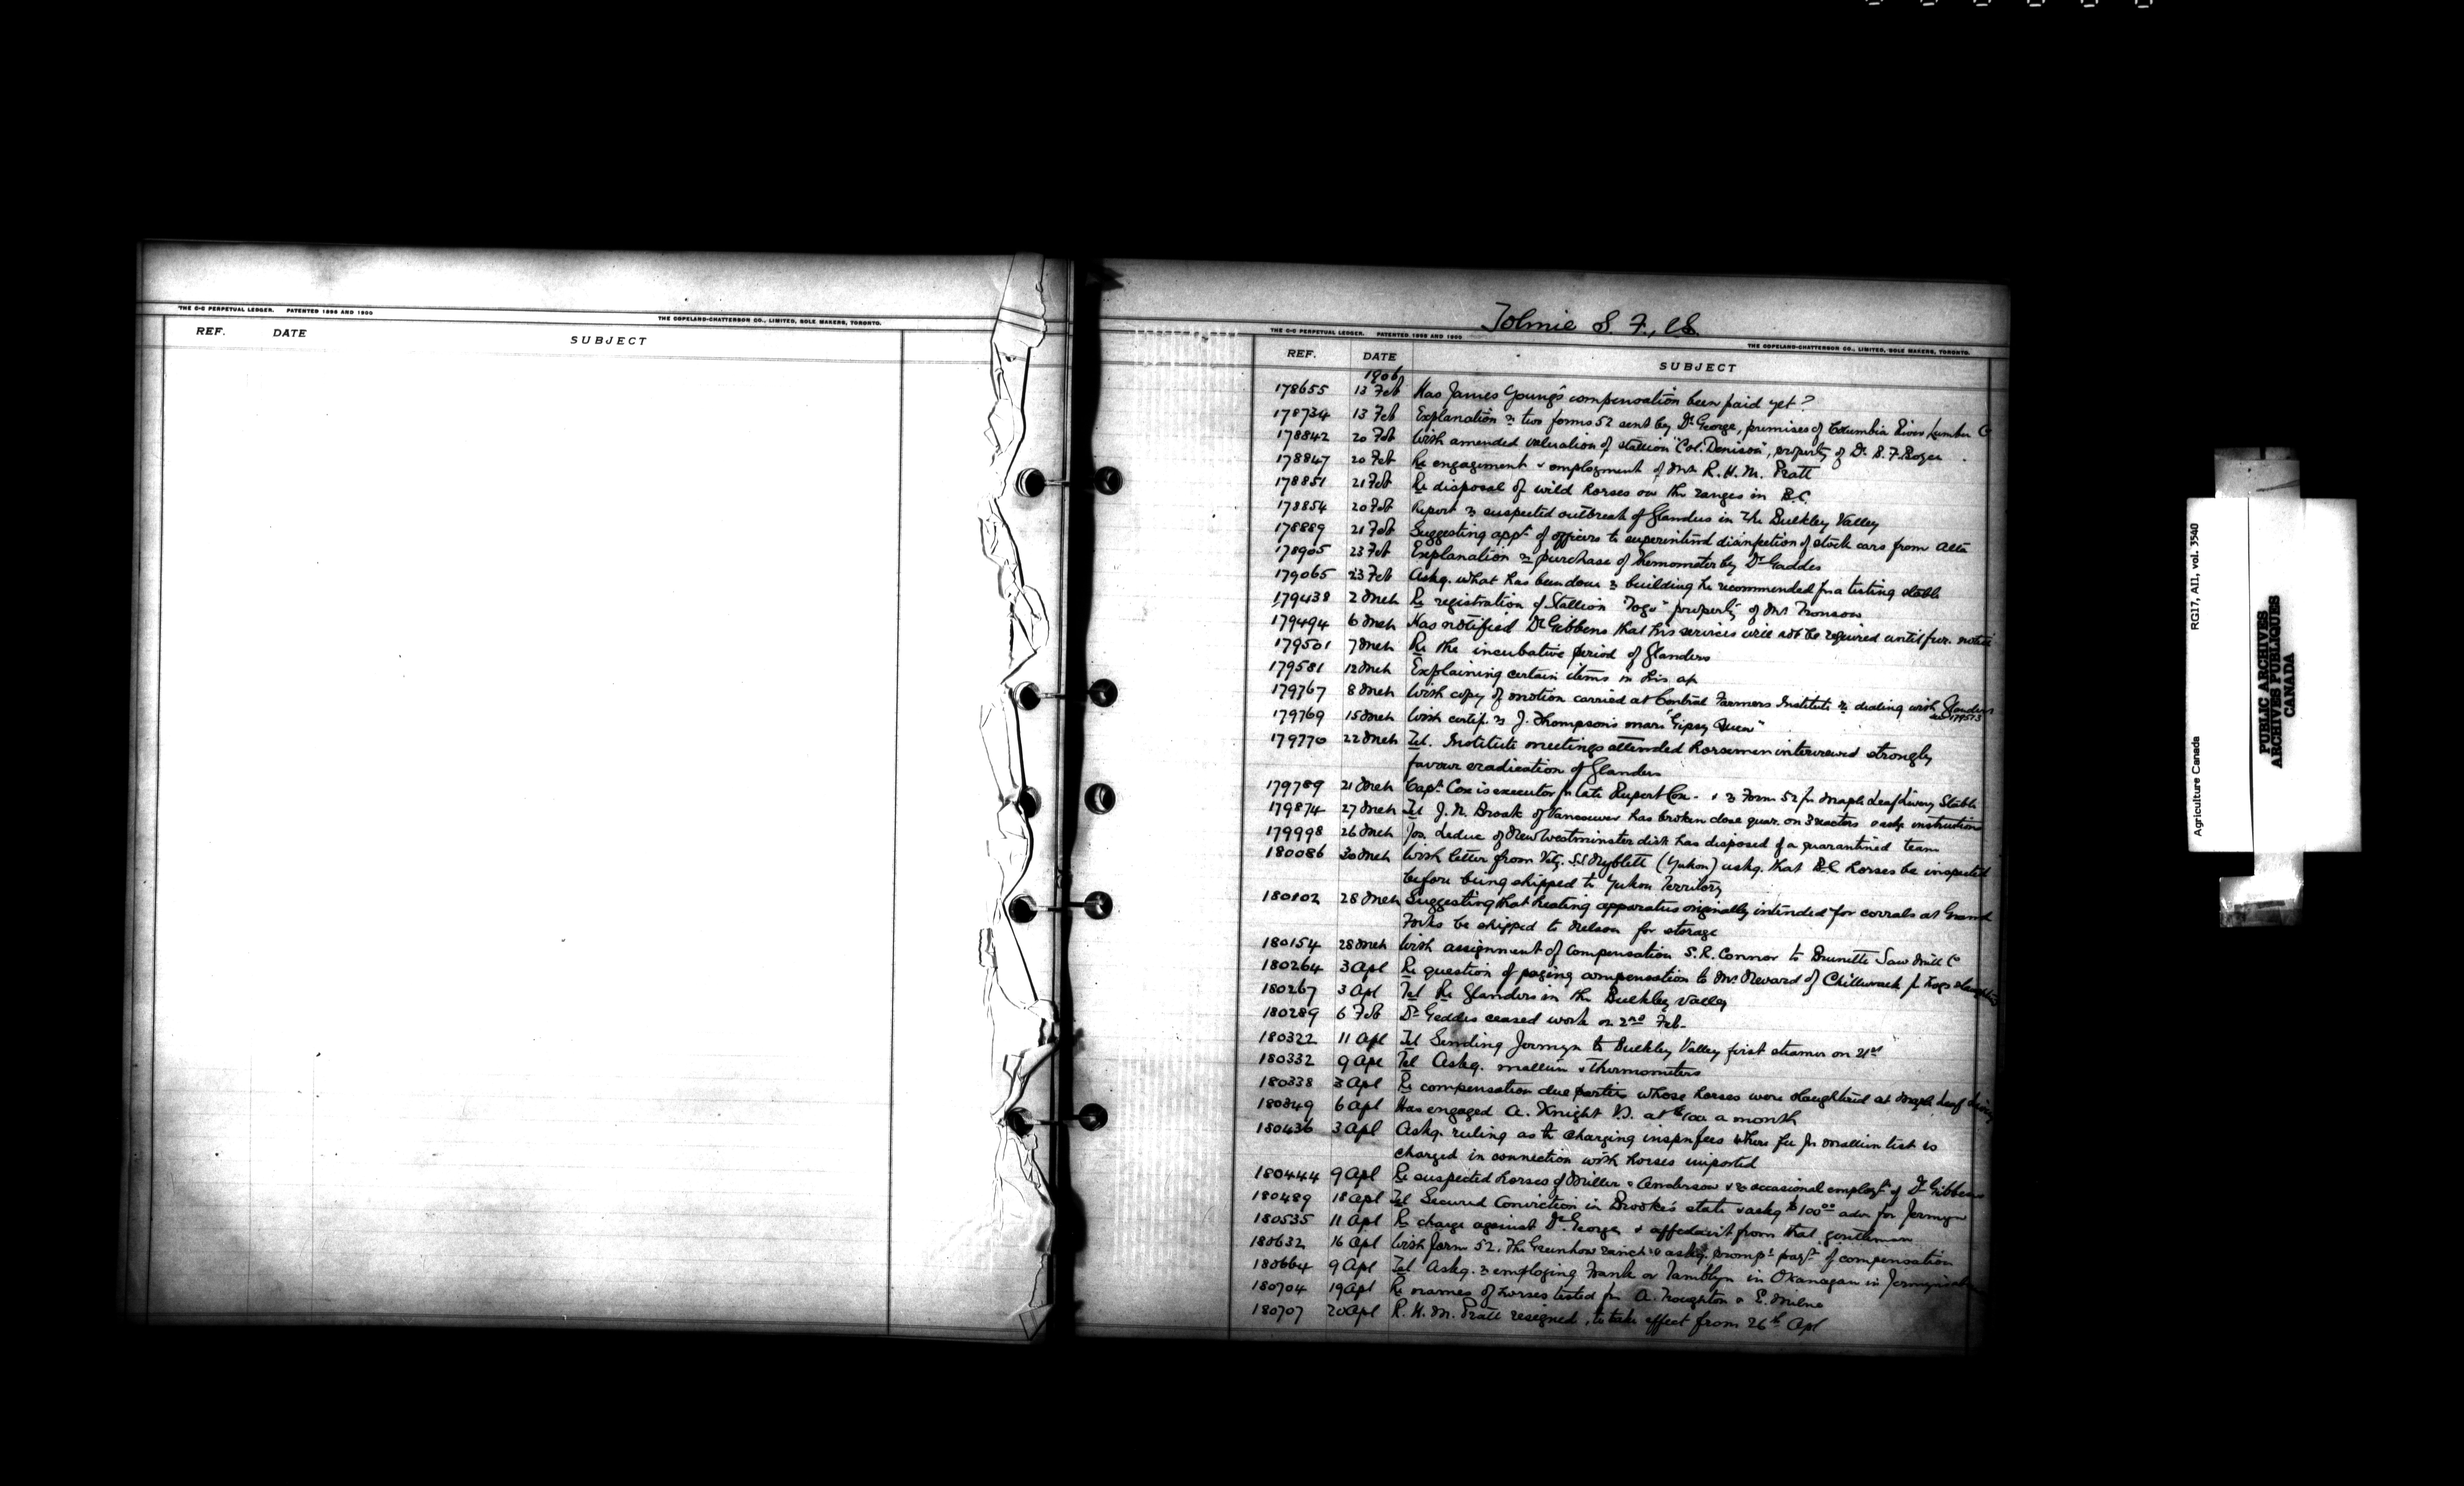 THE C-C PERPETUAL LEDGER. PATENTED 1898 AND 1900
THE COPELAND-CHATTERSON CO., LIMITED, SOLE MAKERS, TORONTO.
REF. DATE SUBJECT
Tolmie S. F., V.S.
THE C-C PERPETUAL LEDGER. PATENTED 1898 AND 1900
THE COPELAND-CHATTERSON CO., LIMITED, SOLE MAKERS, TORONTO.
REF. DATE SUBJECT
1906
178655 13 Feb Has James Young's compensation been paid yet?
178734 13 Feb Explanation re two forms 52 sent by Dr George, premises of Columbia River Lumber Co
178842 20 Feb With amended valuation of stallion "Col. Denison", property of Dr. S. F.
178847 20 Feb Re engagement & employment of Mr R. H. M. Pratt
178851 21 Feb Re disposal of wild horses on the ranges in B.C.
178854 20 Feb Report re suspected outbreak of Glanders in the Bulkley Valley
178889 21 Feb Suggesting appt of officers to superintend disinfection of stock cars from Alta
178905 23 Feb Explanation re purchase of thermometer by Dr Gaddes
179065 23 Feb Askg. what has been done re building he recommended for a testing stable
179438 2 Mch Re registration of Stallion "Togo" property of Mr
179494 6 Mch Has notified Dr Gibbens that his services will not be required until fur. notice
179501 7 Mch Re the incubative period of Glanders
179581 12 Mch Explaining certain items in his a/c
179767 8 Mch With copy of motion carried at Central Farmers Institute re dealing with Glanders
see 179573
179769 15 Mch With certif. re J. Thompson's mare "Gipsy Queen"
179770 22 Mch Tel. Institute meetings attended Horsemen interviewed strongly
favour eradication of Glanders
179789 21 Mch Capt Cox is executor for late Rupert Cox - & re Form 52 for Maple Leaf Livery Stable
179874 27 Mch Tel J. N. Brook of Vancouver has broken close quar. on 3 reactors & askg instructions
179998 26 Mch Jos. Leduc of New Westminster dist has disposed of a quarantined team
180086 30 Mch With letter from Vety. S.S. Nyblett (Yukon) askg. that B.C. horses be inspected
before being shipped to Yukon Territory
180102 28 Mch Suggesting that heating apparatus originally intended for corrals at Grand
Forks be shipped to Nelson for storage
180154 28 Mch With assignment of compensation S. R. Connor to Brunette Saw Mill Co
180264 3 Apl Re question of paying compensation to Mr. of Chilliwack for hogs
180267 3 Apl Tel Re Glanders in the Bulkley Valley
180289 6 Feb Dr Geddes ceased work on 2nd Feb.
180322 11 Apl Tel Sending Jermyn to Bulkley Valley first steamer on 21st
180332 9 Apl Tel Askg. mallein & thermometers
180338 3 Apl Re compensation due parties whose horses were slaughtered at Maple Leaf Livery
180349 6 Apl Has engaged A. Knight V.S. at $100 a month
180436 3 Apl Askg. ruling as to charging inspn fees where fee for mallein test is
charged in connection with horses imported
180444 9 Apl Re suspected horses of Miller & Anderson & re occasional employt of Dr Gibbens
180489 18 Apl Tel Secured Conviction in Brooke's state & askg $100.00 adv. for Jermyn
180535 11 Apl Re charge against Dr. George & affedavit from that gentleman
180632 16 Apl With form 52. The Greenhow ranch & askg. prompt payt of compensation
180664 9 Apl Tel Askg. re employing Frank or Tamblyn in Okanagan in Jermyn's
180704 19 Apl Re names of horses tested for A. Troughton & E. Milne
180707 20 Apl R. H. M. Pratt resigned, to take effect from 26th Apl
Agriculture Canada RG17, AI1, vol. 3540
PUBLIC ARCHIVES
ARCHIVES PUBLIQUES
CANADA